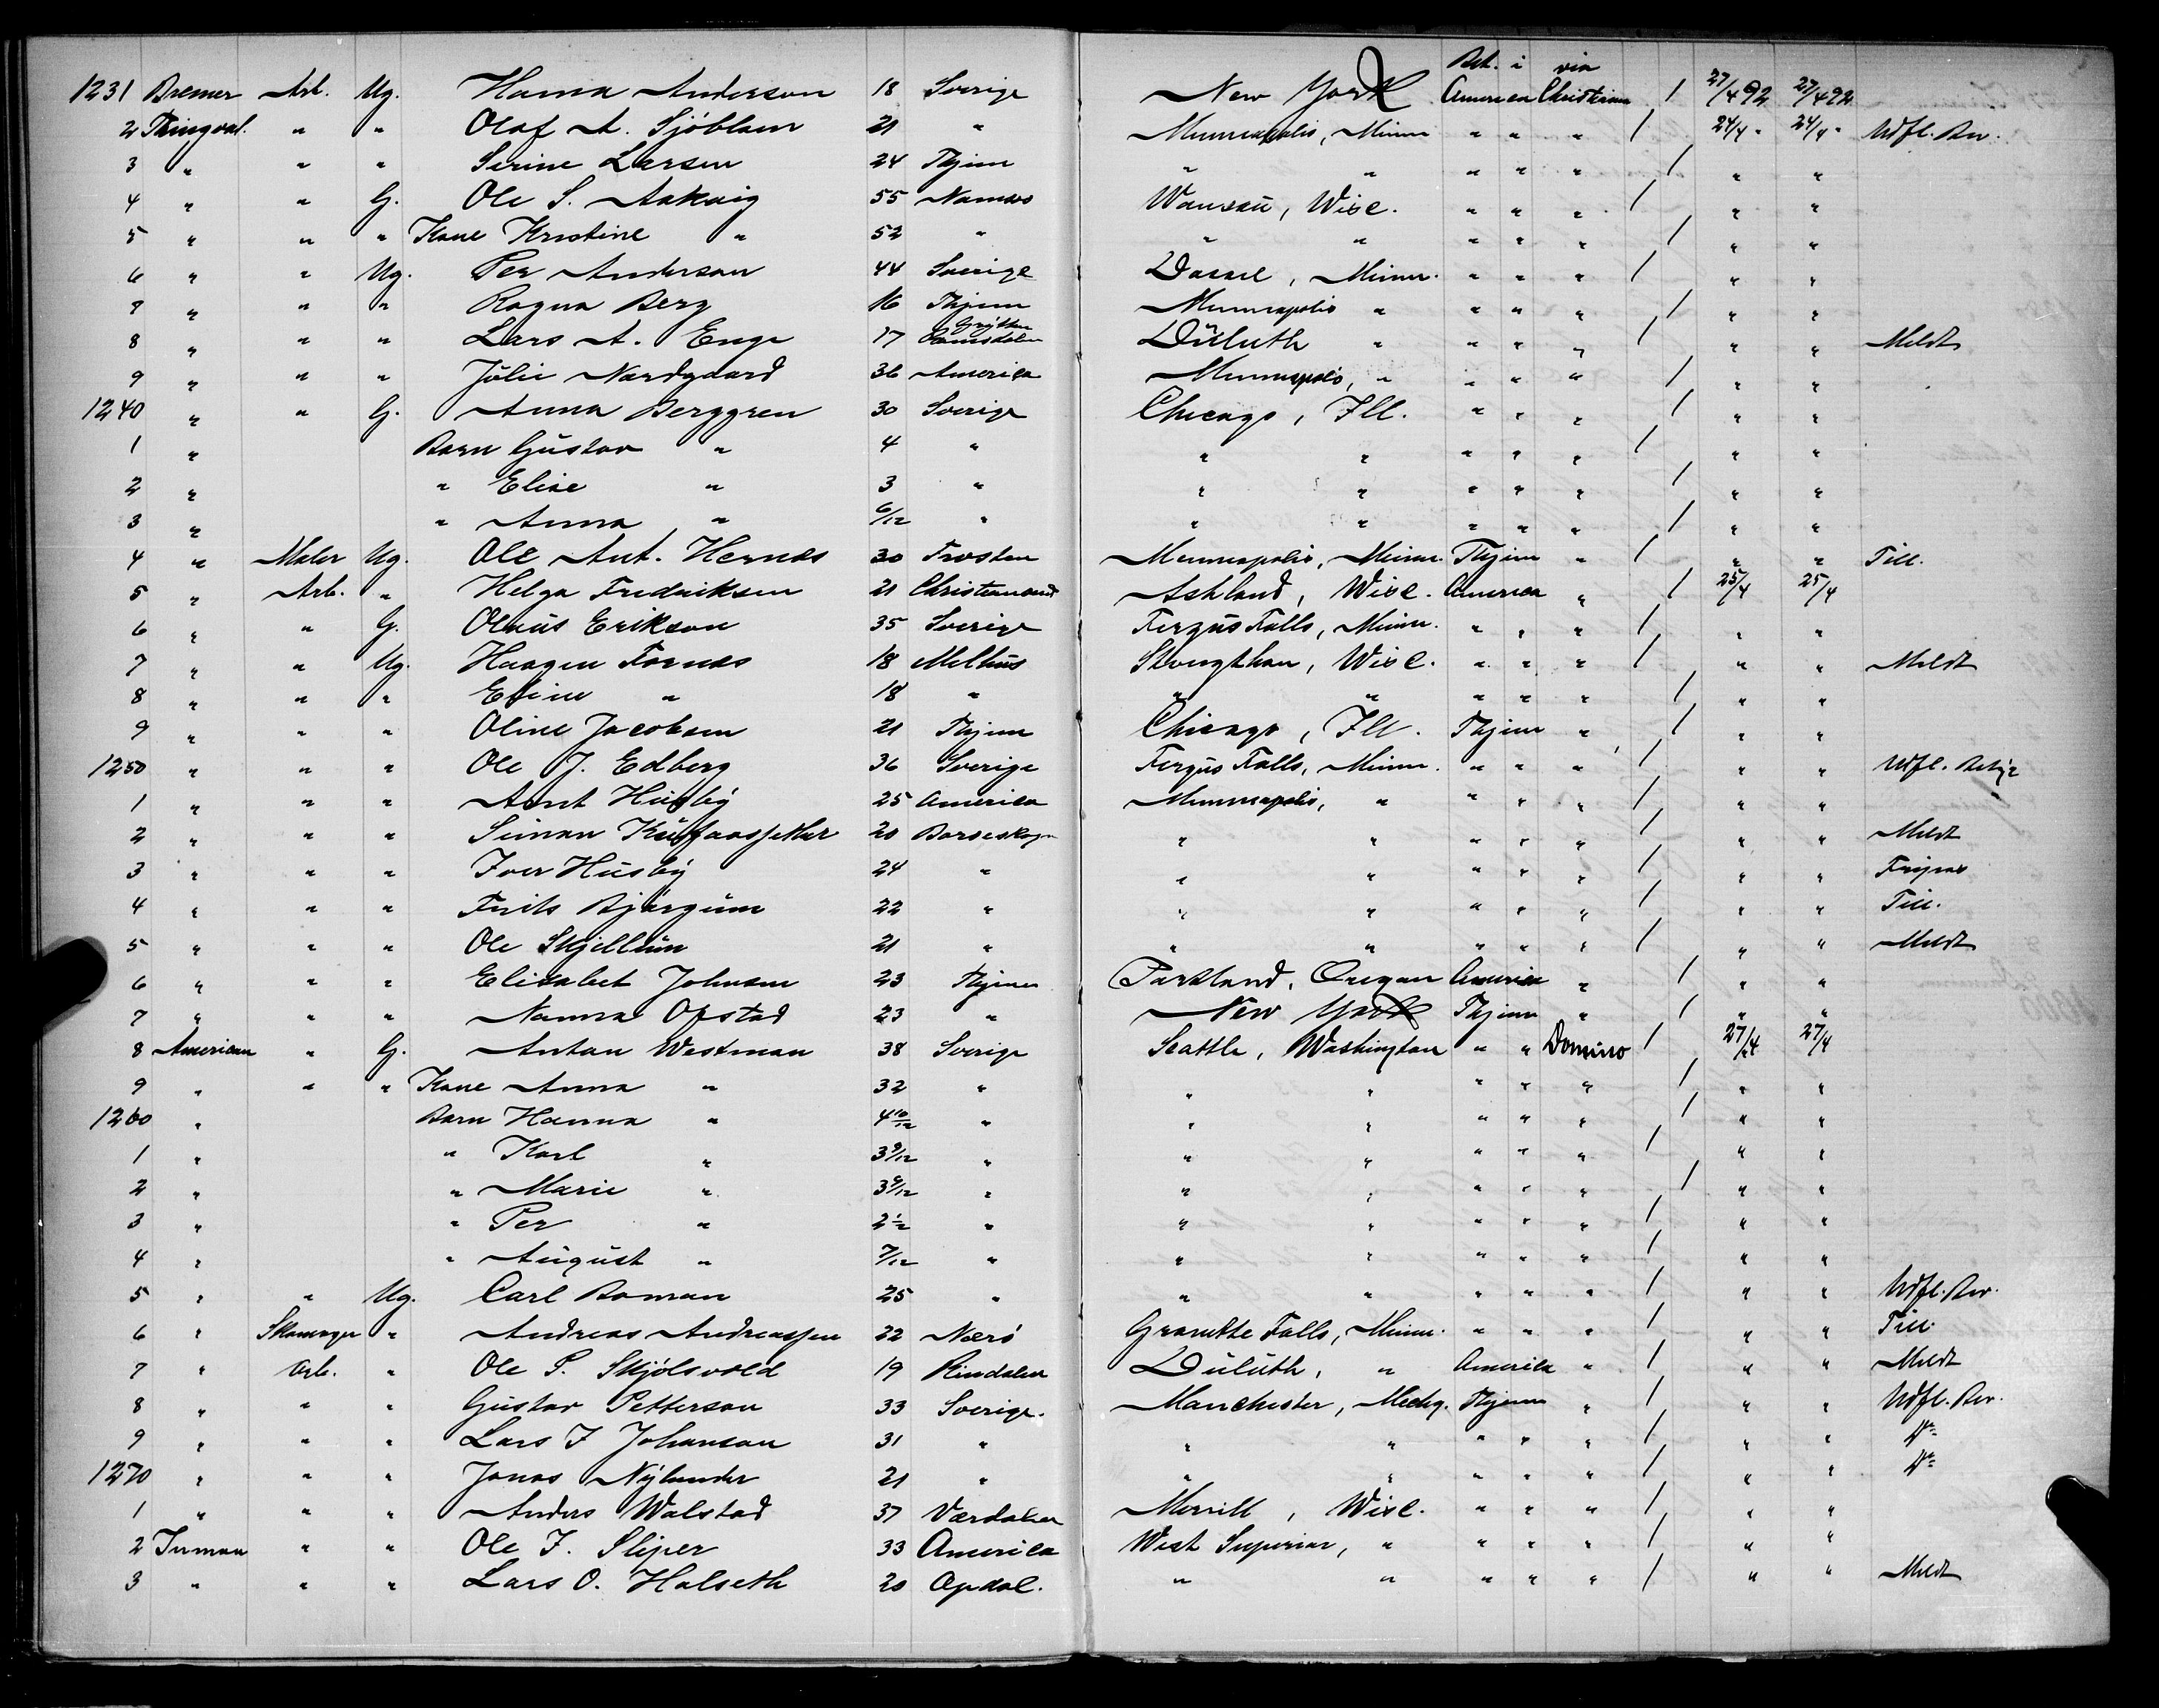 Bet. i via
1231 Bremer Arb. Ug. Hanna Anderson 18 Sverige New York America Christiania / 27/4 92 27/4 92
2 Thingval. " " Olaf A. Sjöblom 21 " Minneapolis, Minn " " " / 24/4 " 24/4 " Udfl. Bev.
3 " " " Serine Larsen 24 Thjem " " " " " / " "
4 " " G. Ole S. 55 Namsos Wausau, Wisc. " " " / " "
5 " " " Kone Kristine " 52 " " " " " " / " "
6 " " Ug. Per Anderson 44 Sverige Dassel, Minn. " " " / " "
7 " " " Ragna Berg 16 Thjem Minneapolis " " " " / " "
Grytten
8 " " " Lars A. Enge 17 Romsdalen Duluth " " " " / " " Meldt
9 " " " Julie Nordgaard 36 America Minneapolis, " " " " / " "
1240 " " G. Anna Berggren 30 Sverige Chicago, Ill. " " " / " "
1 " Barn Gustav " 4 " " " " " " / " "
2 " " Elise " 3 " " " " " " / " "
3 " " Anna " 6/12 " " " " " " / " "
4 " Maler Ug. Ole Ant. Hernes 30 Frosten Minneapolis, Minn. Thjem " / " " Till.
5 " Arb. " Helga Fredriksen 21 Christiansund Ashland, Wisc. America " / 25/4 25/4
6 " " G. Olaus Erikson 35 Sverige Fergus Falls, Minn. " " " / " "
7 " " Ug. Haagen Fornes 18 Melhus Stoughthon, Wisc. " " " / " " Meldt
8 " " " Eline " 18 " " " " " " / " "
9 " " " Oline Jacobsen 21 Thjem Chicago, Ill. Thjem " / " "
1250 " " " Ole J. Edberg 36 Sverige Fergus Falls, Minn. " " " / " " Udfl.
1 " " " Arnt Husby 25 America Minneapolis, " " " " / " "
2 " " " Simon 20 Børseskogn " " " " " / " " Meldt
3 " " " Iver Husby 24 " " " " " " / " " Fripas
4 " " " Frits Bjørgum 22 " " " " " " / " " Till.
5 " " " Ole Skjellum 21 " " " " " " / " " Meldt
6 " " " Elisabet Johnsen 23 Thjem Portland, Oregon America " / " "
7 " " " Nanna Opstad 23 " New York Thjem " / " "
8 American " G. Anton Westman 38 Sverige Seattle, Washington " " Domino / 27/4 27/4
9 " " " Kone Anna " 32 " " " " " " / " "
1260 " Barn Hanna " 4 10/12 " " " " " " / " "
1 " " Karl " 3 9/12 " " " " " " / " "
2 " " Marie " 3 9/12 " " " " " " / " "
3 " " Per " 2 1/2 " " " " " " / " "
4 " " August " 7/12 " " " " " " / " "
5 " " Ug. Carl Boman 25 " " " " " " / " " Udfl. Bev.
6 " Skomager " Andreas Andreassen 22 Nærö Granitte Falls, Minn. " " " / " " Till.
7 " Arb. " Ole P. Skjölsvold 19 Rindalen Duluth, " America " / " " Meldt
8 " " " Gustav Petterson 33 Sverige. Manchester, Mechg. Thjem " / " " Udfl. Bev.
9 " " " Lars I Johanson 31 " " " " " " / " " Do
1270 " " " Jonas Nylander 21 " " " " " " / " " Do
1 " " " Anders Walstad 37 Værdalen Merrill, Wisc. " " " / " "
2 Inman " " Ole I. Sliper 33 America West Superior, " " " " / " "
3 " " " Lars O. Halseth 20 Opdal. " " " " " / " " Meldt